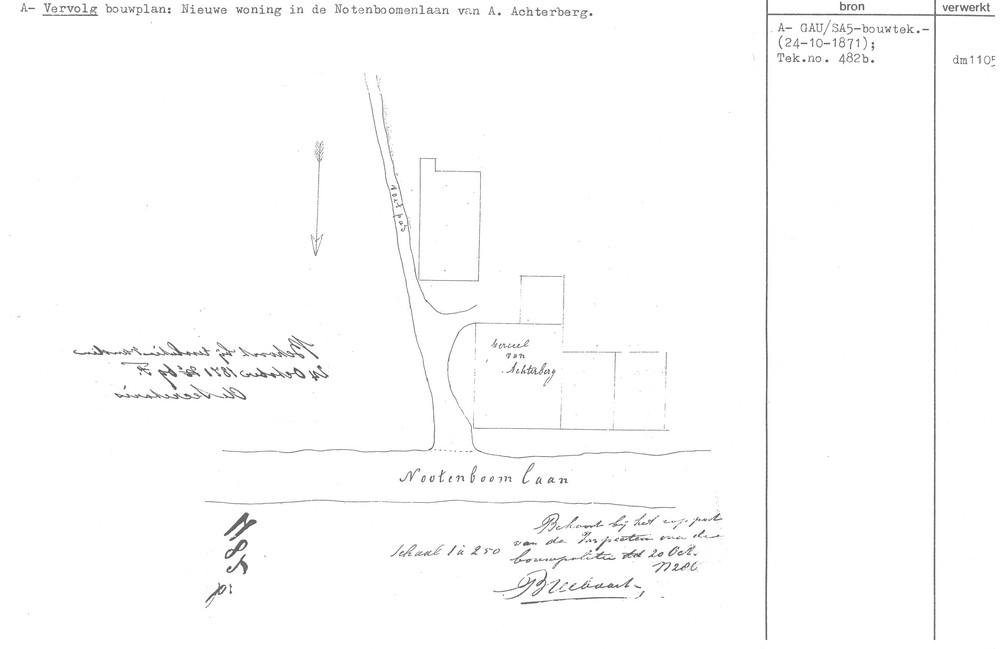 A- Vervolg bouwplan: Nieuwe woning in de Notenboomenlaan van A. Achterberg.
bron
verwerkt
A- GAU/SA5-bouwtek.-
(24-10-1871);
Tek.no. 482b.
dm1105
voetpad
perceel
van
Achterberg
Behoort bij
24 October 1871
De Secretaris
Nootenboom laan
Schaal 1 à 250
Behoort bij het rapport
van de Inspecteur van de
bouwpolitie dd 20 Oct.
N 286